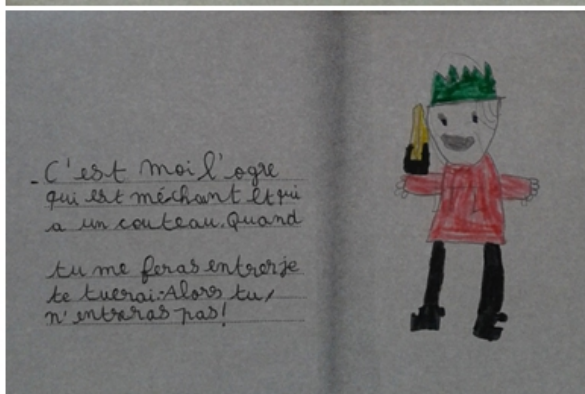 - C'est moi l'ogre
qui est méchant et qui
a un couteau. Quand
tu me feras entrer je
te tuerai. Alors tu
n'entreras pas!